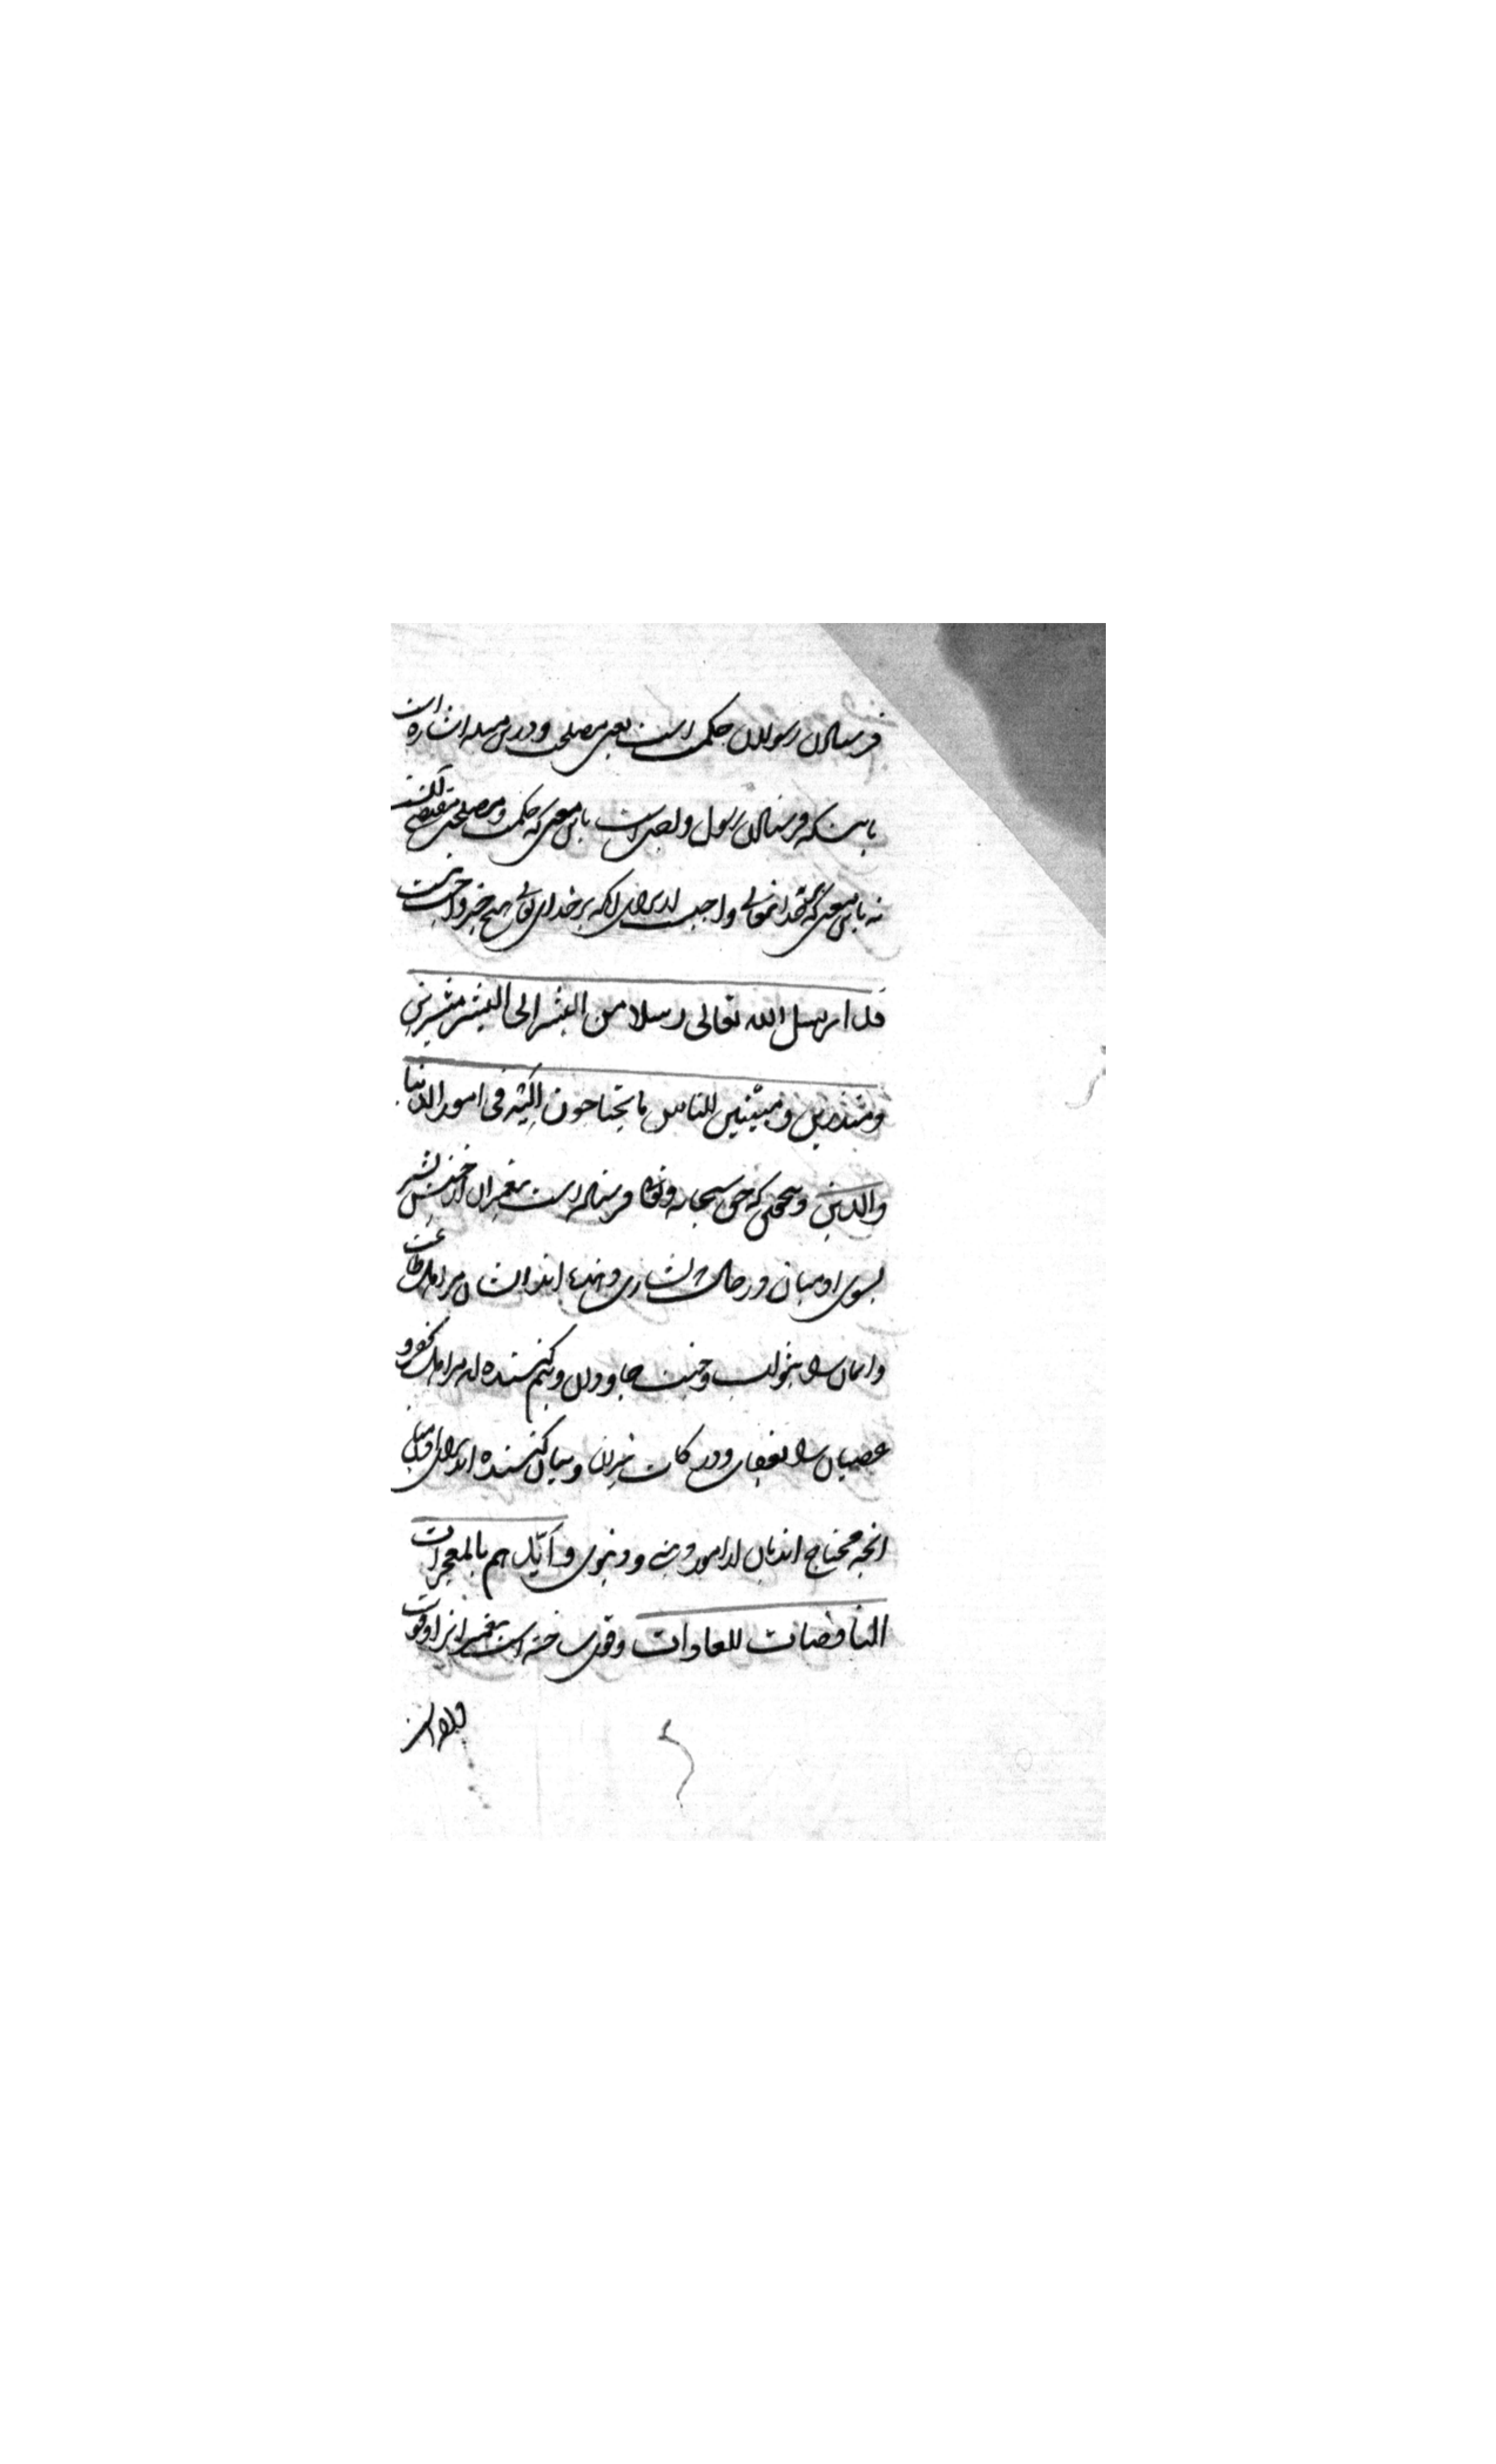 فرستادن رسولان حکمت است یعنی مصلحت و درین مسئله اشارة است
باینکه فرستادن رسول واجب است باین معنی که حکمت و مصلحت مقتضی آنست
نه باین معنی که بر خدایتعالی واجب از برای انکه بر خدای تعالی هیچ چیز واجب نیست
قد ارسل الله تعالی رسلا من البشر الی البشر مبشرین
ومنذرین ومبینین للناس ما یحتاجون الیه فی امور الدنیا
والدین وبتحقیق که حق سبحانه وتعالی فرستاده است پیغمبران از جنس بشر
بسوی ادمیان در حالت بشارت دهنده اند ایشان مر اهل طاعت
وایمان را بثواب وجنت جاودان وبیم کننده اند مر اهل کفر و
عصیان را بعقاب ودرکات نیران وبیان کننده اند برای ادمیان
انچه محتاج اند بان از امور دینی ودنیوی وایدهم بالمعجزات
الناقضات للعادات وقوی ساخته است پیغمبرانرا وقوت